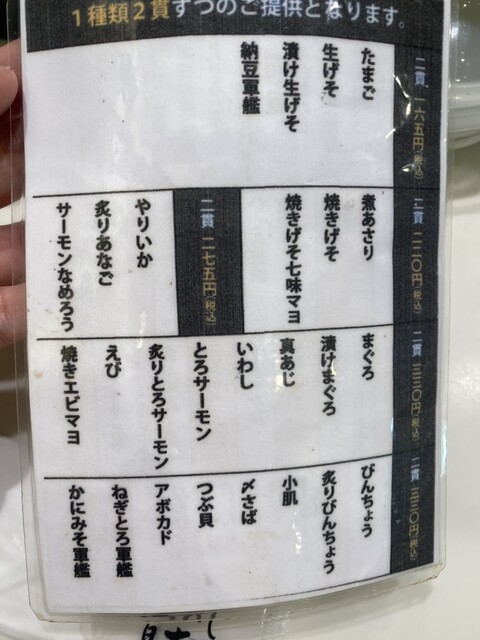 １種類２貫ずつのご提供となります。
二貫 一六五円(税込)
たまご
生げそ
漬け生げそ
納豆軍艦
二貫 二二〇円(税込)
煮あさり
焼きげそ
焼きげそ七味マヨ
二貫 二七五円(税込)
やりいか
炙りあなご
サーモンなめろう
二貫 三三〇円(税込)
まぐろ
漬けまぐろ
真あじ
いわし
とろサーモン
炙りとろサーモン
えび
焼きエビマヨ
二貫 三三〇円(税込)
びんちょう
炙りびんちょう
小肌
〆さば
つぶ貝
アボカド
ねぎとろ軍艦
かにみそ軍艦